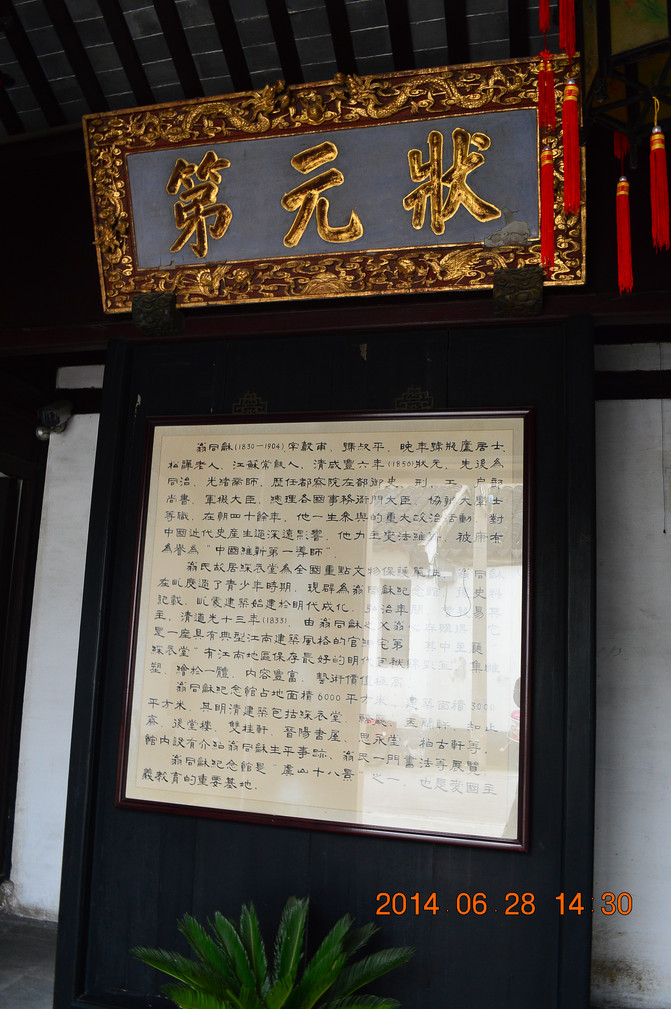 狀元第
翁同龢(1830—1904)字叔甫，號叔平，晚年號瓶廬居士，
松禪老人，江蘇常熟人，清咸豐六年(1850)狀元，先後為
同治、光緒帝師，歷任都察院左都御史，刑、工、戶部
尚書，軍機大臣，總理各國事務衙門大臣，協辦大學士
等職，在朝四十餘年，他一生參與的重大政治活動，對
中國近代史產生過深遠影響，他力主變法維新，被康有
為譽為"中國維新第一導師"。
翁氏故居綵衣堂為全國重點文物保護單位，翁同龢
在此度過了青少年時期，現辟為翁同龢紀念館，史料
記載，此處建築始建於明代成化、弘治年間
主，清道光十三年(1833)，由翁同龢之父翁心存
是一座具有典型江南建築風格的官紳宅第，其中主廳
綵衣堂"有江南地區保存最好的明代包袱
塑、繪於一體，內容豐富，藝術價值極高
翁同龢紀念館占地面積6000平方米，建築面積3000
平方米，其明清建築包括綵衣堂、知
齋、後堂樓、雙桂軒、晉陽書屋、思永堂、柏古軒等，
館內設有介紹翁同龢生平事跡、翁氏一門書法等展覽。
翁同龢紀念館是"虞山十八景"之一，也是愛國主
義教育的重要基地。
2014 06 28 14:30